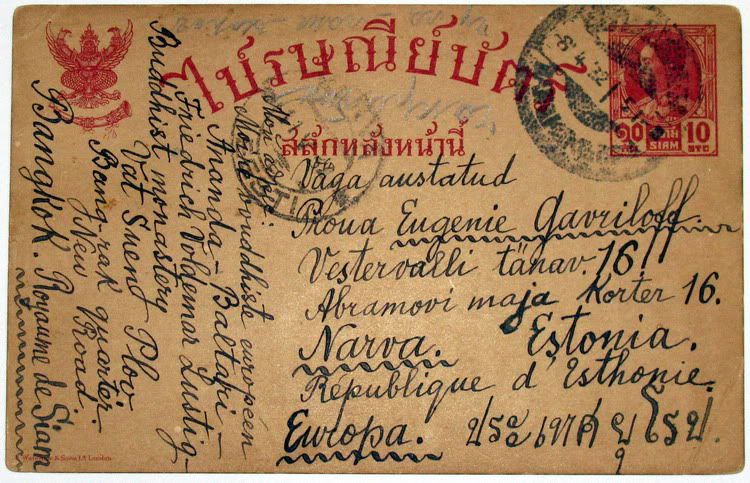 ไปรษณียบัตร
สลักหลังหน้านี้
๑๐ 10
SIAM
8 4 32
Väga austatud
Proua Eugenie Gavriloff.
Vestervalli tänav. 16
Abramovi maja Korter 16.
Narva. Estonia.
République d'Esthonie.
Europa. ประเทศยุโรป
Moine bouddhiste européen
Ananda – Baltapi –
Friedrich Voldemar Lustig –
Buddhist monastery
Vat Suend Plov
Bang-rak quarter.
New Road.
Bangkok. Royaume de Siam
London